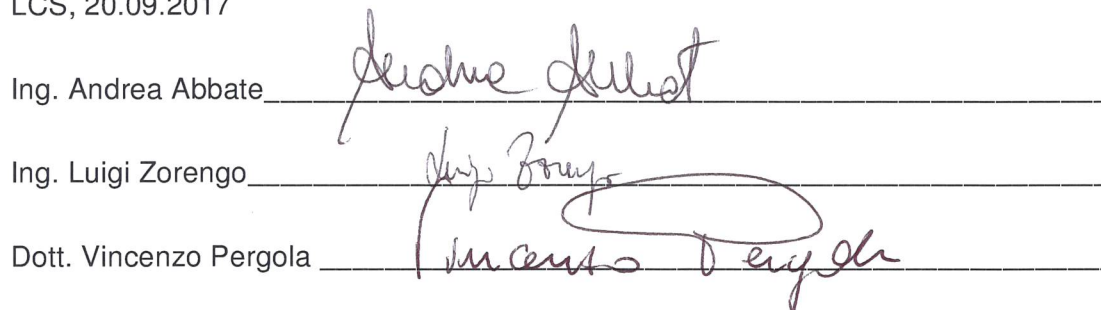 LCS, 20.09.2017
Ing. Andrea Abbate Andrea Abbat
Ing. Luigi Zorengo Luigi Zorengo
Dott. Vincenzo Pergola Vincenzo Pergola